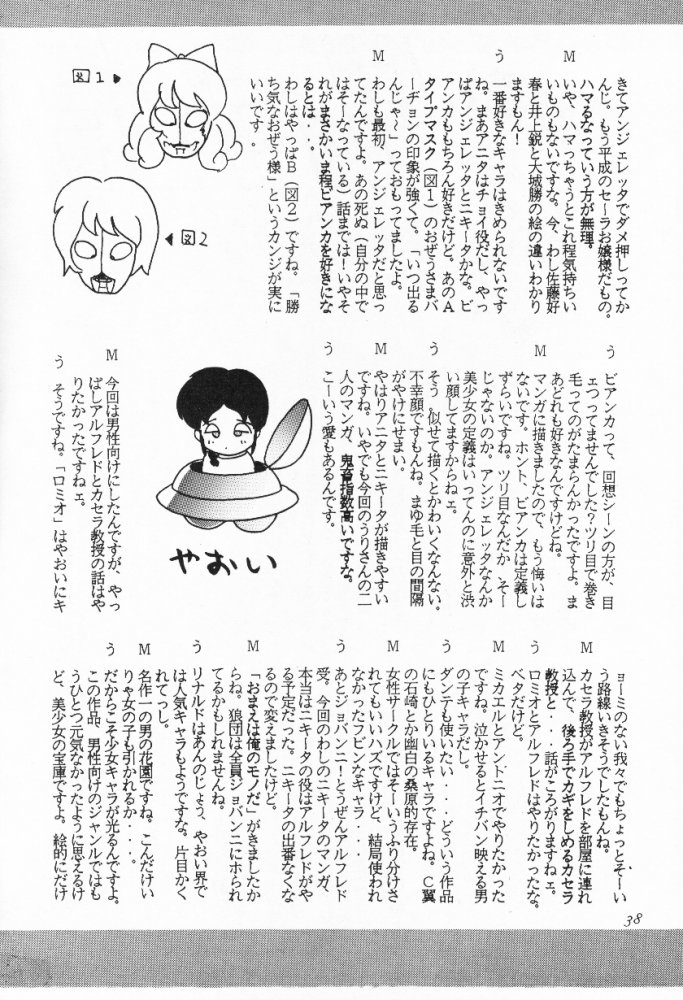 きてアンジェレッタでダメ押しってか
んじ。もう平成のセーラお嬢様だもの。
ハマるなっていう方が無理。
M いや、ハマっちゃうとこれ程気持ちい
いものもないですな。今、わし佐藤好
春と井上鋭と大城勝の絵の違いわかり
ますもん！
う 一番好きなキャラはきめられないです
ね。まあアニタはチョイ役だし、やっ
ぱアンジェレッタとニキータかな。ビ
アンカももちろん好きだけど。あのA
タイプマスク（図1）のおぜうさまバ
ージョンの印象が強くて。「いつ出る
んじゃ〜」っておもってましたよ。
M わしも最初、アンジェレッタだと思っ
てたんですよ。あの死ぬ（自分の中で
はそーなっている）話までは！いやそ
れがまさかいま程ビアンカを好きにな
るとは・・・。
わしはやっぱB（図2）ですね。「勝
ち気なおぜう様」というカンジが実に
いいです。
図1
図2
う ビアンカって、回想シーンの方が、目
ェつってませんでした？ツリ目で巻き
毛ってのがたまらんかったですよ。ま
あどれも好きなんですけどね。
M マンガに描きましたので、もう悔いは
ないです。ホント、ビアンカは定義し
ずらいですね。ツリ目なんだか、そー
じゃないのか。アンジェレッタなんか
美少女の定義はいってんのに意外と渋
い顔してますからねェ。
う そう。似せて描くとかわいくなんない。
不幸顔ですもんね。まゆ毛と目の間隔
がやけにせまい。
M やはりアニタとニキータが描きやすい
ですね。いやでも今回のうりさんの二
人のマンガ、鬼畜指数高いですな。
う こーいう愛もあるんです。
やおい
M 今回は男性向けにしたんですが、やっ
ぱしアルフレドとカセラ教授の話はや
りたかったですねェ。
う そうですね。「ロミオ」はやおいにキ
ョーミのない我々でもちょっとそーい
う路線いきそうでしたもんね。
M カセラ教授がアルフレドを部屋に連れ
込んで、後ろ手でカギをしめるカセラ
教授と・・話がころがりますねェ。
う ロミオとアルフレドはやりたかったな。
ベタだけど。
M ミカエルとアントニオでやりたかった
ですね。泣かせるとイチバン映える男
の子キャラだし。
う ダンテも使いたい・・・どういう作品
にもひとりいるキャラですよね。C翼
の石崎とか幽白の桑原的存在。
M 女性サークルではそーいうふり分けさ
れてもいいハズですけど、結局使われ
なかったフビンなキャラ・・・
う あとジョバンニ！とうぜんアルフレド
受。今回のわしのニキータのマンガ、
本当はニキータの役はアルフレドがや
る予定だった。ニキータの出番なくな
るので変えましたけど。
M 「おまえは俺のモノだ」がきましたか
らね。狼団は全員ジョバンニにホられ
てるかもしれませんね。
う リナルドはあんのじょう、やおい界で
は人気キャラもようですな。片目かく
れてっし。
M 名作一の男の花園ですね。こんだけい
りゃ女の子も引かれるか・・・。
う だからこそ少女キャラが光るんですよ。
この作品、男性向けのジャンルではも
うひとつ元気なかったように思えるけ
ど、美少女の宝庫ですよ。絵的にだけ
38